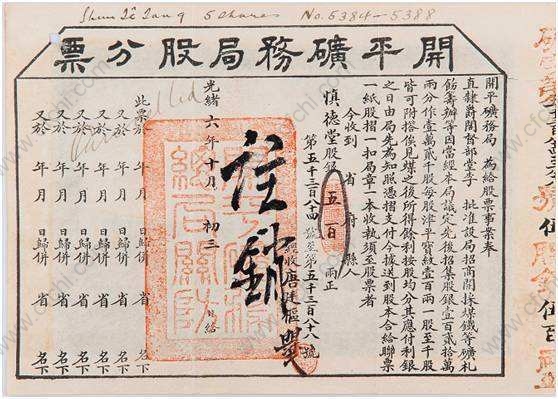 Shun Tê Tang 5 Shares No. 5384–5388
開平礦務局股分票
開平礦務局 為給股票事案奉
直隸爵閣督部堂李 批准設局招商開採煤鐵等礦札
飭籌辦等因當經本局議定先後招集股銀壹百貳拾萬
兩分作壹萬貳千股每股津平寶紋壹百兩一股至千股
皆可附搭俟見煤之後所得餘利按股均分其應付利銀
之日由局先為知照憑摺支付今據送到股本合給聯票
一紙股摺一扣局章一本收執須至股票者
今收到 省 府 縣人
慎德堂股本 五百 兩正
第五千三百八十四號至第五千三百八十八號
經收唐廷樞
註銷
光緒六年十月初三日給
此票於 年 月 日歸併 省 名下
又於 年 月 日歸併 省 名下
又於 年 月 日歸併 省 名下
又於 年 月 日歸併 省 名下
又於 年 月 日歸併 省 名下
www.cfchi.com